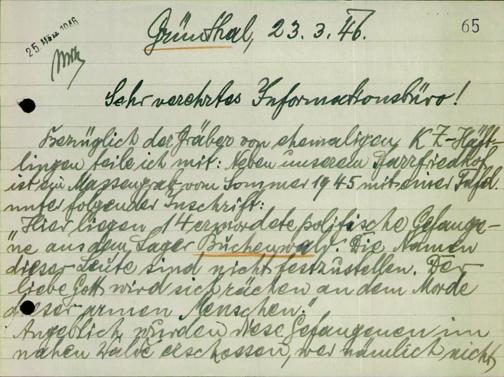 Grünthal, 23.3.46.
65
25. März 1946
Sehr verehrtes Informationsbüro!
Bezüglich der Gräber von ehemaligen KZ-Häft-
lingen teile ich mit: Neben unserem Pfarrfriedhof
ist ein Massengrab vom Sommer 1945 mit einer Tafel
unter folgender Inschrift:
"Hier liegen 14 ermordete politische Gefange-
ne aus dem Lager Buchenwald. Die Namen
dieser Leute sind nicht festzustellen. Der
liebe Gott wird sich rächen an dem Morde
dieser armen Menschen."
Angeblich wurden diese Gefangenen im
nahen Walde erschossen, wer nämlich nicht